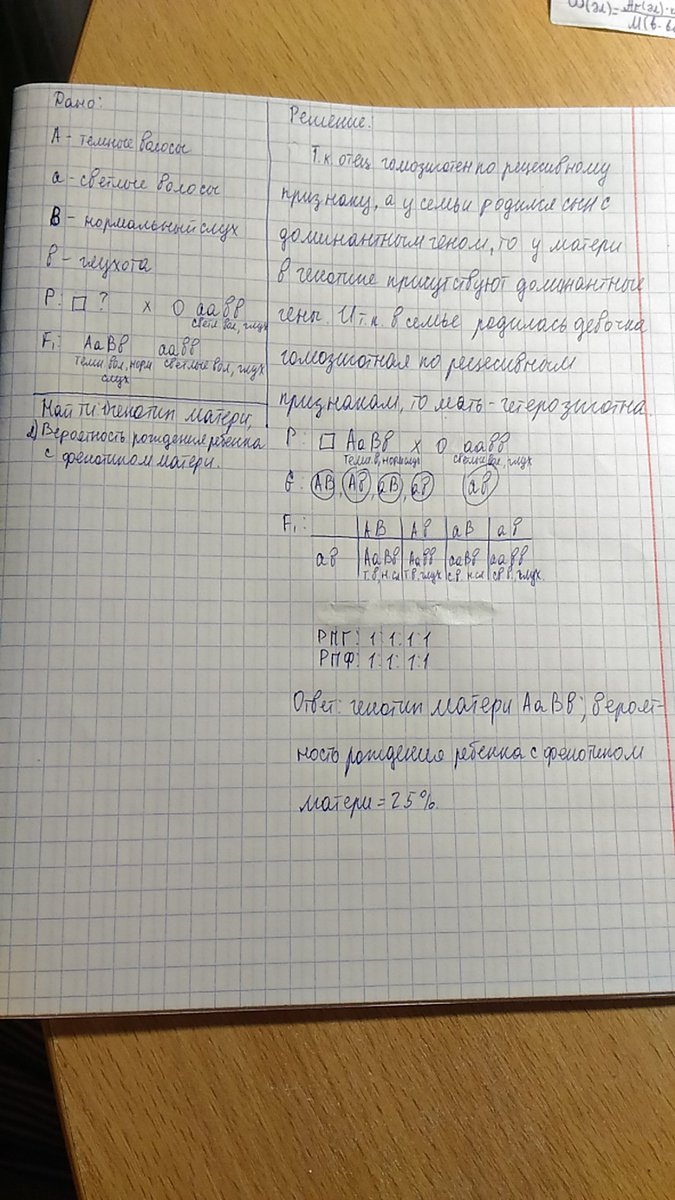 ω(эл)=Ar(эл)·
M(в-ва
Дано:
А - темные волосы
а - светлые волосы
В - нормальный слух
в - глухота
P: □ ? x О аавв
светл вол, глух
F₁: АаВв аавв
темн вол, норм светлые вол, глух
слух
Найти: 1) генотип матери,
2) Вероятность рождения ребенка
с фенотипом матери.
Решение:
Т.к отец гомозиготен по рецесивному
признаку, а у семьи родился сын с
доминантным геном, то у матери
в генотипе присутствуют доминантные
гены. И т.к. в семье родилась девочка
гомозиготная по рецесивным
признакам, то мать - гетерозиготна.
P: □ АаВв x О аавв
темн в, норм слух светлые вол, глух
G: АВ, Ав, аВ, ав ав
F₁: АВ Ав аВ ав
ав АаВв Аавв ааВв аавв
т.в, н.сл т.в, глух с в. н.сл св в. глух.
РПГ: 1:1:1:1
РПФ: 1:1:1:1
Ответ: генотип матери АаВв; вероят-
ность рождения ребенка с фенотипом
матери = 25%.